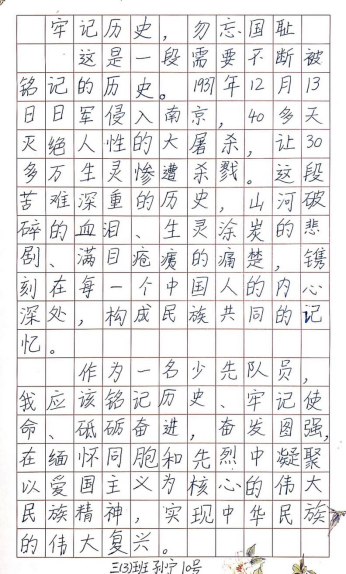 牢记历史，勿忘国耻
这是一段需要不断被
铭记的历史。1937年12月13
日日军侵入南京，40多天
灭绝人性的大屠杀，让30
多万生灵惨遭杀戮。这段
苦难深重的历史，山河破
碎的血泪、生灵涂炭的悲
剧、满目疮痍的痛楚，镌
刻在每一个中国人的内心
深处，构成民族共同的记
忆。
作为一名少先队员，
我应该铭记历史、牢记使
命、砥砺奋进，奋发图强，
在缅怀同胞和先烈中凝聚
以爱国主义为核心的伟大
民族精神，实现中华民族
的伟大复兴。
三(3)班 孙宁 10号